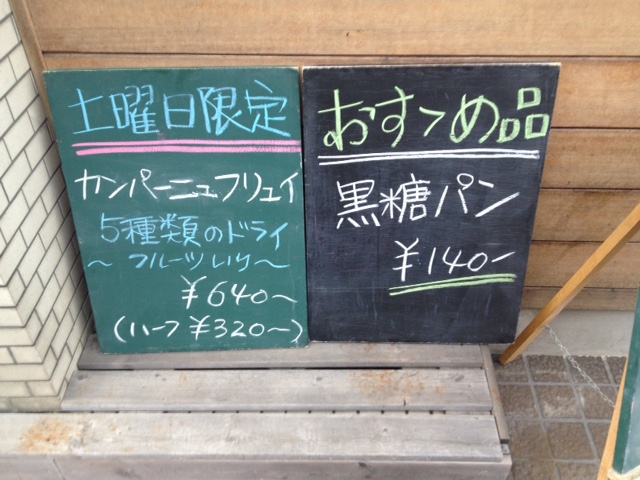 土曜日限定
カンパーニュフリュイ
5種類のドライ
～フルーツいり～
¥640～
(ハーフ¥320～)
おすゝめ品
黒糖パン
¥140-